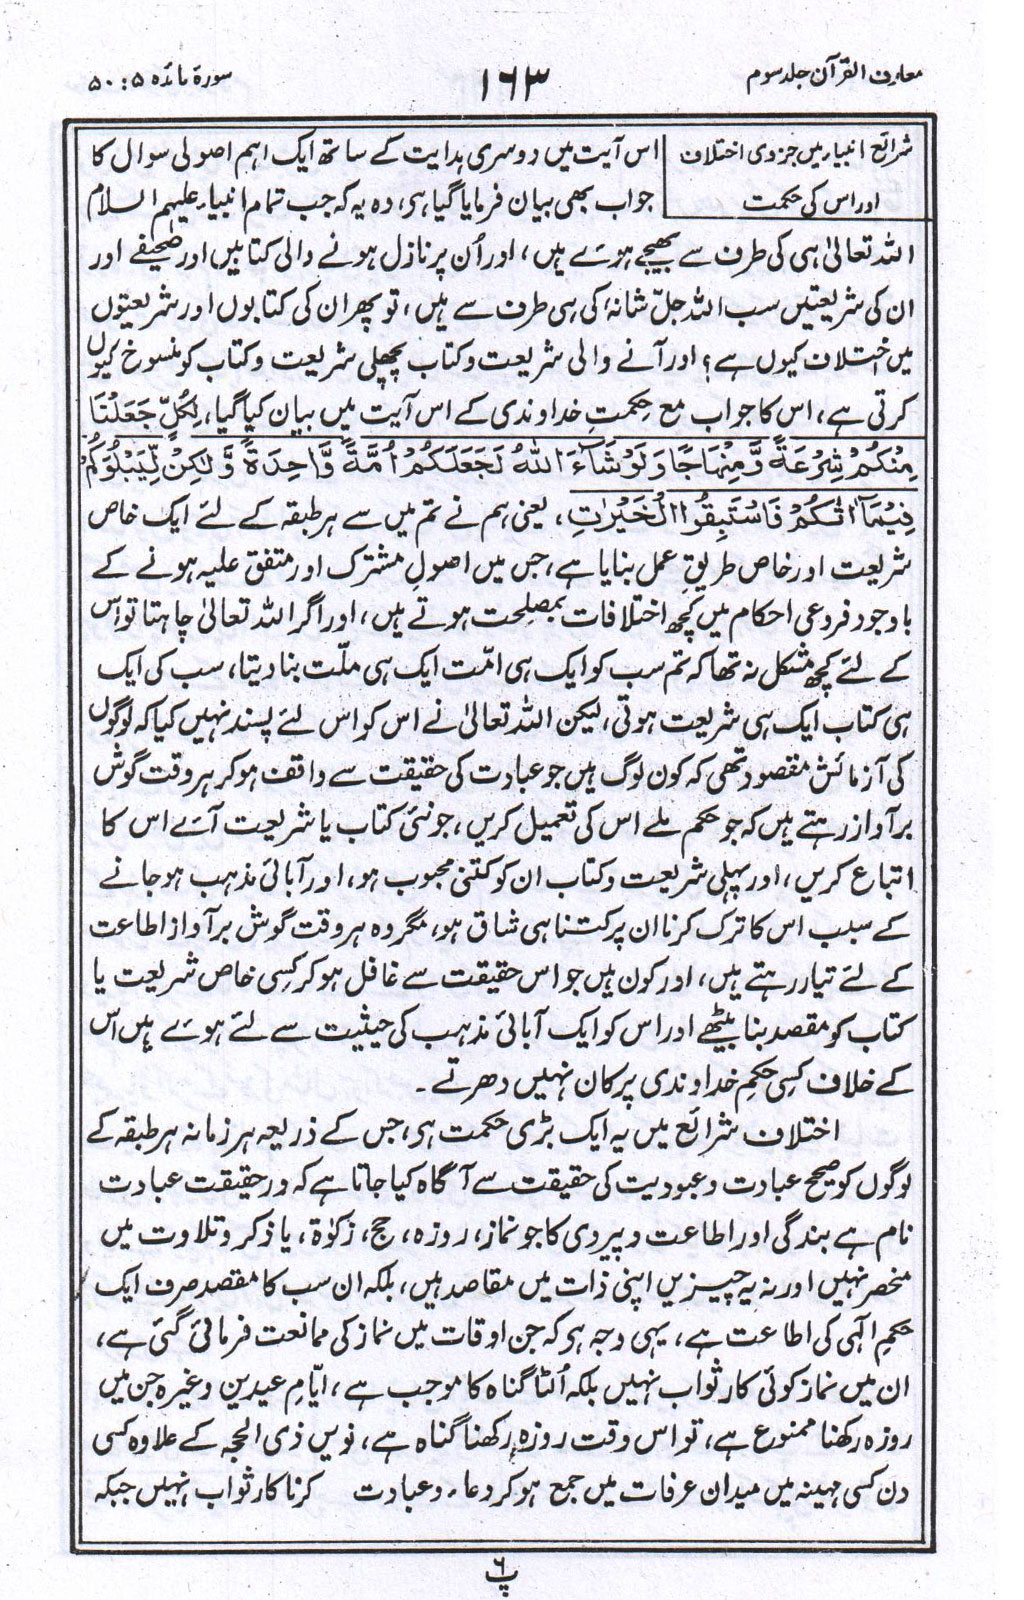 معارف القرآن جلد سوم
۱۶۳
سورۃ مائدہ ۵ : ۵۰
شرائع انبیاء میں جزوی اختلاف
اور اس کی حکمت
اس آیت میں دوسری ہدایت کے ساتھ ایک اہم اصولی سوال کا
جواب بھی بیان فرمایا گیا ہی، وہ یہ کہ جب تمام انبیاء علیہم السلام
اللہ تعالیٰ ہی کی طرف سے بھیجے ہوئے ہیں، اور اُن پر نازل ہونے والی کتابیں اور صحیفے اور
ان کی شریعتیں سب اللہ جلّ شانہٗ کی ہی طرف سے ہیں، تو پھر ان کی کتابوں اور شریعتوں
میں اختلاف کیوں ہے؟ اور آنے والی شریعت و کتاب پچھلی شریعت و کتاب کو منسوخ کیوں
کرتی ہے، اس کا جواب مع حکمتِ خداوندی کے اس آیت میں بیان کیا گیا، لِكُلٍّ جَعَلْنَا
مِنْكُمْ شِرْعَةً وَّمِنْهَاجًا وَلَوْ شَآءَ اللّٰهُ لَجَعَلَكُمْ اُمَّةً وَّاحِدَةً وَّلٰكِنْ لِّيَبْلُوَكُمْ
فِيْمَآ اٰتٰكُمْ فَاسْتَبِقُوا الْخَيْرٰتِ، یعنی ہم نے تم میں سے ہر طبقہ کے لئے ایک خاص
شریعت اور خاص طریقِ عمل بنایا ہے، جس میں اصول مشترک اور متفق علیہ ہونے کے
باوجود فروعی احکام میں کچھ اختلافات بمصلحت ہوتے ہیں، اور اگر اللہ تعالیٰ چاہتا تو اس
کے لئے کچھ مشکل نہ تھا کہ تم سب کو ایک ہی امّت ایک ہی ملّت بنا دیتا، سب کی ایک
ہی کتاب ایک ہی شریعت ہوتی، لیکن اللہ تعالیٰ نے اس کو اس لئے پسند نہیں کیا کہ لوگوں
کی آزمائش مقصود تھی کہ کون لوگ ہیں جو عبادت کی حقیقت سے واقف ہو کر ہر وقت گوش
بر آواز رہتے ہیں کہ جو حکم ملے اس کی تعمیل کریں، جو نئی کتاب یا شریعت آئے اس کا
اتباع کریں، اور پہلی شریعت و کتاب ان کو کتنی محبوب ہو، اور آبائی مذہب ہو جانے
کے سبب اس کا ترک کرنا ان پر کتنا ہی شاق ہو، مگر وہ ہر وقت گوش بر آواز اطاعت
کے لئے تیار رہتے ہیں، اور کون ہیں جو اس حقیقت سے غافل ہو کر کسی خاص شریعت یا
کتاب کو مقصد بنا بیٹھے اور اس کو ایک آبائی مذہب کی حیثیت سے لئے ہوئے ہیں اس
کے خلاف کسی حکمِ خداوندی پر کان نہیں دھرتے۔
اختلافِ شرائع میں یہ ایک بڑی حکمت ہی، جس کے ذریعہ ہر زمانہ ہر طبقہ کے
لوگوں کو صحیح عبادت و عبودیت کی حقیقت سے آگاہ کیا جاتا ہے کہ درحقیقت عبادت
نام ہے بندگی اور اطاعت و پیروی کا جو نماز، روزہ، حج، زکوٰۃ، یا ذکر و تلاوت میں
منحصر نہیں اور نہ یہ چیزیں اپنی ذات میں مقاصد ہیں، بلکہ ان سب کا مقصد صرف ایک
حکمِ الٰہی کی اطاعت ہے، یہی وجہ ہر کہ جن اوقات میں نماز کی ممانعت فرمائی گئی ہے،
ان میں نماز کوئی کارِ ثواب نہیں بلکہ اُلٹا گناہ کا موجب ہے، ایّامِ عیدین وغیرہ جن میں
روزہ رکھنا ممنوع ہے، تو اس وقت روزہ رکھنا گناہ ہے، نویں ذی الحجہ کے علاوہ کسی
دن کسی مہینہ میں میدانِ عرفات میں جمع ہو کر دعاء و عبادت کرنا کارِ ثواب نہیں جبکہ
۶
پ